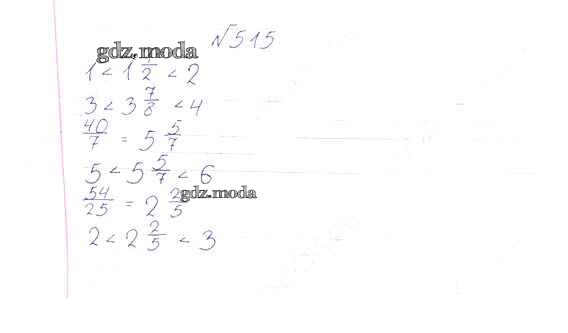 №515
gdz.moda
1 < 1 1/2 < 2
3 < 3 7/8 < 4
40/7 = 5 5/7
5 < 5 5/7 < 6
54/25 = 2 2/5
gdz.moda
2 < 2 2/5 < 3